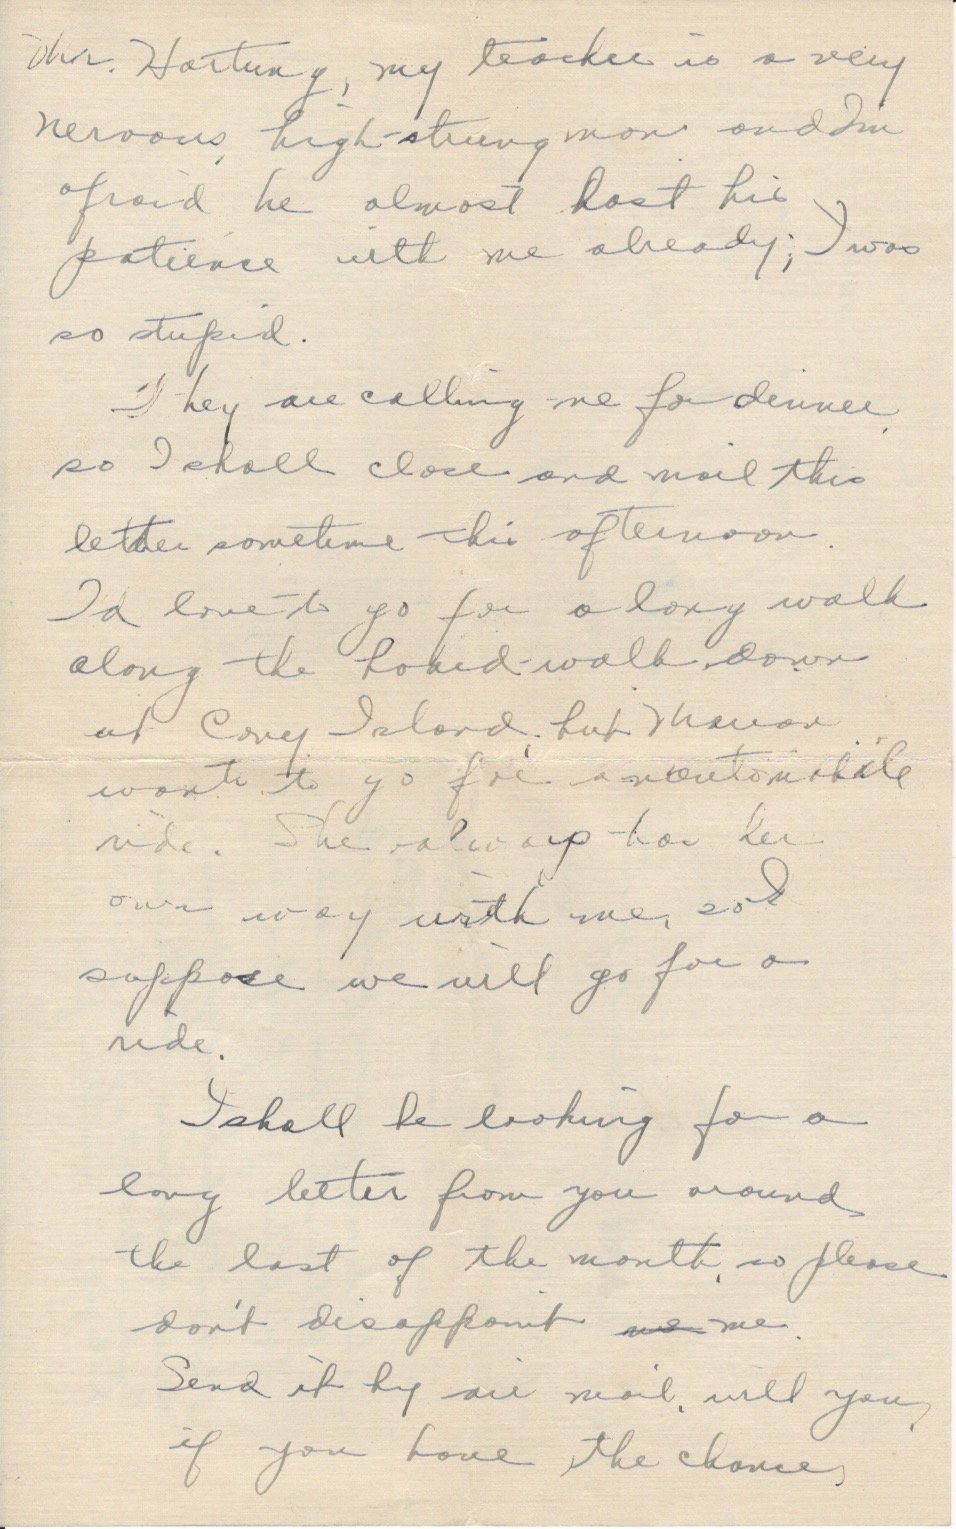 Mr. Hartung, my teacher is a very
nervous, high-strung man and I'm
afraid he almost lost his
patience with me already; I was
so stupid.
They are calling me for dinner,
so I shall close and mail this
letter sometime this afternoon.
I'd love to go for a long walk
along the board-walk down
at Coney Island, but Marian
wants to go for an automobile
ride. She always has her
own way with me, so I
suppose we will go for a
ride.
I shall be looking for a
long letter from you around
the last of the month, so please
don't disappoint me.
Send it by air mail, will you,
if you have the chance,